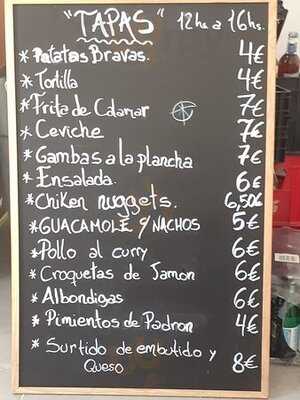 "TAPAS" 12hs a 16hs.
* Patatas Bravas. 4€
* Tortilla 4€
* Frita de Calamar 7€
* Ceviche 7€
* Gambas a la plancha 7€
* Ensalada. 6€
* Chiken nuggets. 6,50€
* GUACAMOLE Y NACHOS 5€
* Pollo al curry 6€
* Croquetas de Jamon 6€
* Albondigas 6€
* Pimientos de Padron 4€
* Surtido de embutido y
Queso 8€